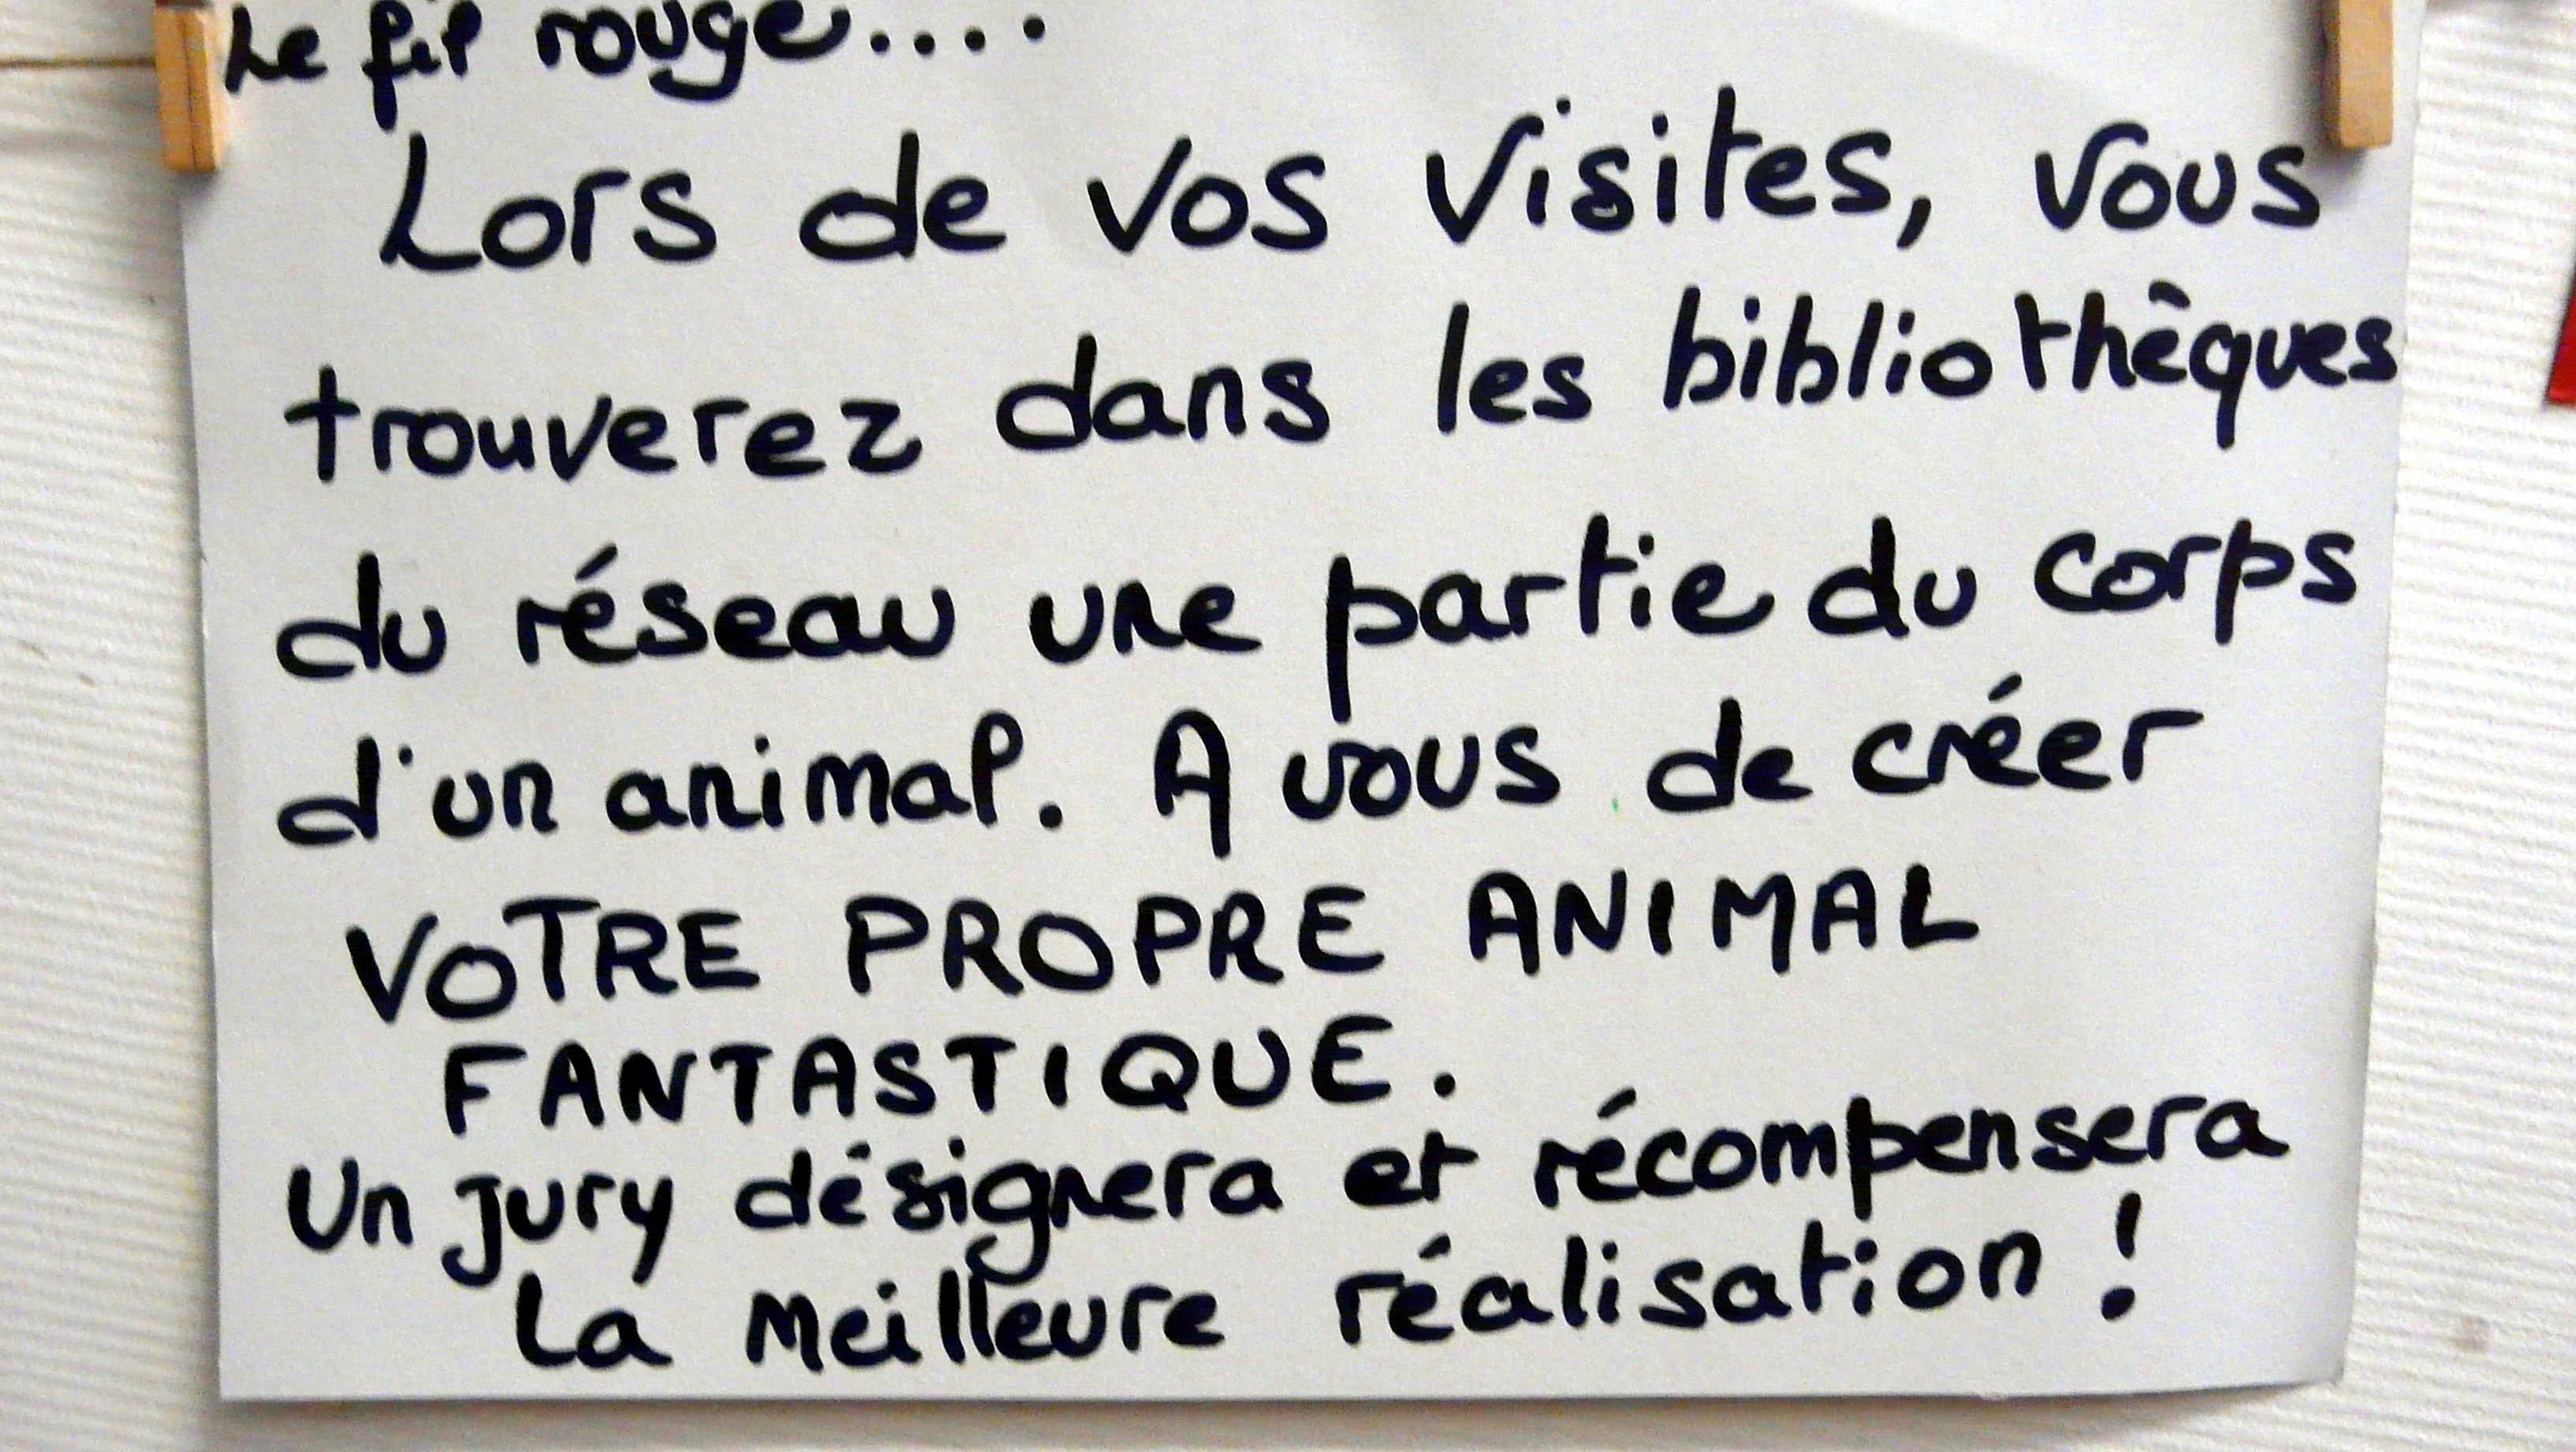 Le fil rouge....
Lors de vos visites, vous
trouverez dans les bibliothèques
du réseau une partie du corps
d'un animal. A vous de créer
VOTRE PROPRE ANIMAL
FANTASTIQUE.
Un jury désignera et récompensera
la meilleure réalisation !